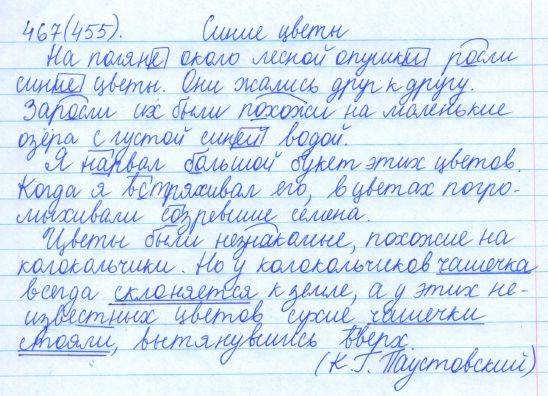 467(455). Синие цветы
На поляне около лесной опушки росли
синие цветы. Они жались друг к другу.
Заросли их были похожи на маленькие
озёра с густой синей водой.
Я нарвал большой букет этих цветов.
Когда я встряхивал его, в цветах погро-
мыхивали созревшие семена.
Цветы были незнакомые, похожие на
колокольчики. Но у колокольчиков чашечка
всегда склоняется к земле, а у этих не-
известных цветов сухие чашечки
стояли, вытянувшись вверх.
(К.Г. Паустовский)